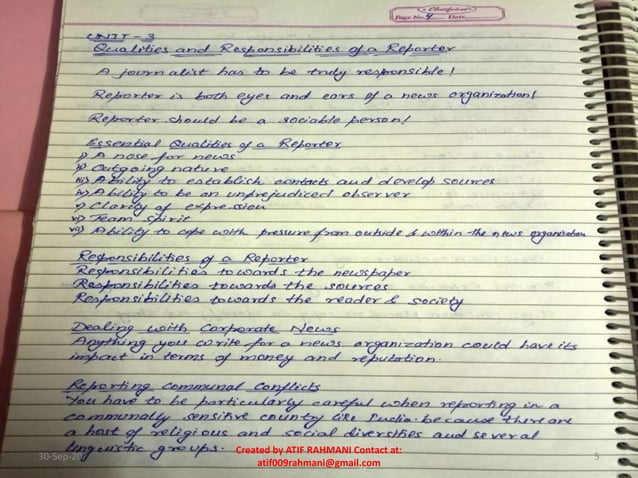 Classmate
Page No. 4 Date
UNIT - 3
Qualities and Responsibilities of a Reporter
A journalist has to be truly responsible!
Reporter is both eyes and ears of a news organization!
Reporter should be a sociable person!
Essential Qualities of a Reporter
i) A nose for news
ii) Outgoing nature
iii) Ability to establish contacts and develop sources
iv) Ability to be an unprejudiced observer
v) Clarity of expression
vi) Team spirit
vii) Ability to cope with pressure from outside & within the news organization
Responsibilities of a Reporter
Responsibilities towards the newspaper
Responsibilities towards the sources
Responsibilities towards the reader & society
Dealing with Corporate News
Anything you write for a news organization could have its
impact in terms of money and reputation.
Reporting Communal Conflicts
You have to be particularly careful when reporting in a
communally sensitive country like India because there are
a host of religious and social diversities and several
linguistic groups.
30-Sep-20
Created by ATIF RAHMANI Contact at:
atif009rahmani@gmail.com
5